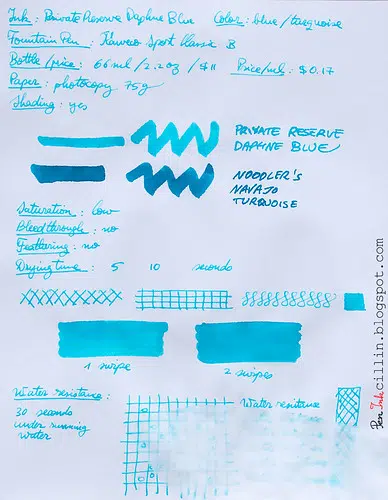 Ink: Private Reserve Daphne Blue Color: blue/turquoise
Fountain Pen: Kaweco Sport Classic B
Bottle/price: 66 ml/2.2oz/$11 Price/ml: $0.17
Paper: photocopy 75g
Shading: yes
PRIVATE RESERVE
DAPHNE BLUE
NOODLER'S
NAVAJO
TURQUOISE
Saturation: low
Bleedthrough: no
Feathering: no
Drying time: 5 10 seconds
1 swipe
2 swipes
Water resistance:
30 seconds
under running
water
Water resistance
Pen Ink cillin.blogspot.com